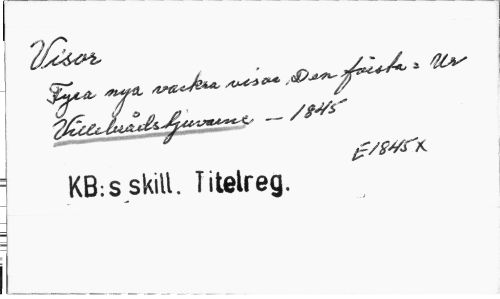 Visor
Fyra nya vackra visor. Den första: Ur
Villebrådstjuvarne — 1845
E1845x
KB:s skill. Titelreg.